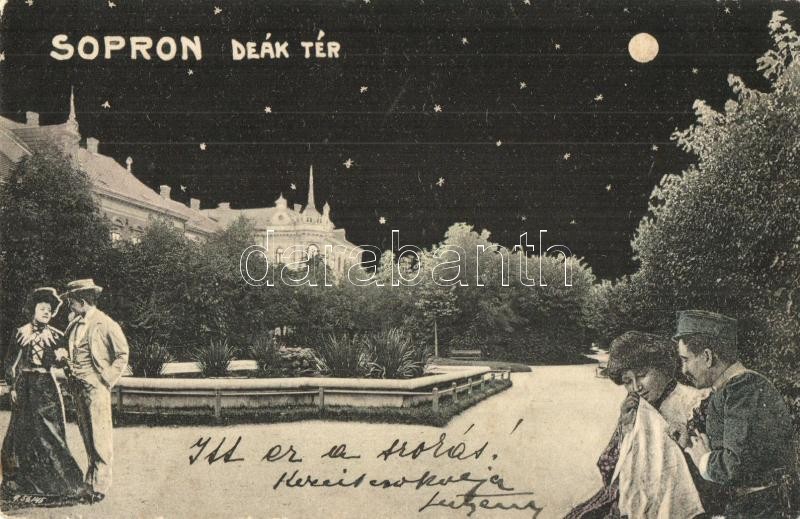 SOPRON DEÁK TÉR
darabanth
Itt ez a szokás!
Kezeit csókolja